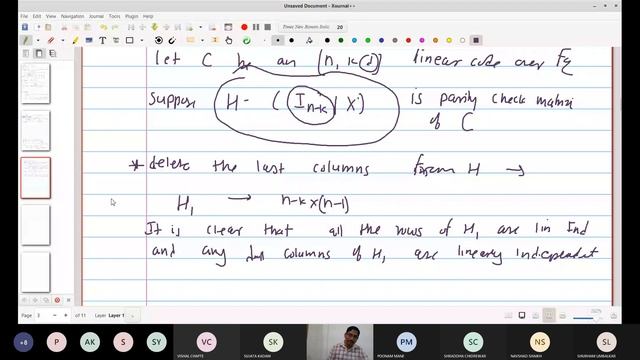 Unsaved Document - Xournal++
File Edit View Navigation Journal Tools Plugin Help
Times New Roman Italic 20
let C be an [n, k d] linear code over Fq
Suppose H - ( I n-k | X ) is parity check matrix
of C
* delete the last columns from H →
H1 → n-k x (n-1)
It is clear that all the rows of H1 are lin Ind
and any columns of H1 are linearly independent
Page 3 of 11 Layer Layer 1
+8 P AK S SY VC SK PM SC NS SL
VISHAL CHAPTE SUJATA KADAM POONAM MANE SHRADDHA CHOREKAR NAUSHAD SHAIKH SHUBHAM UMBALKAR